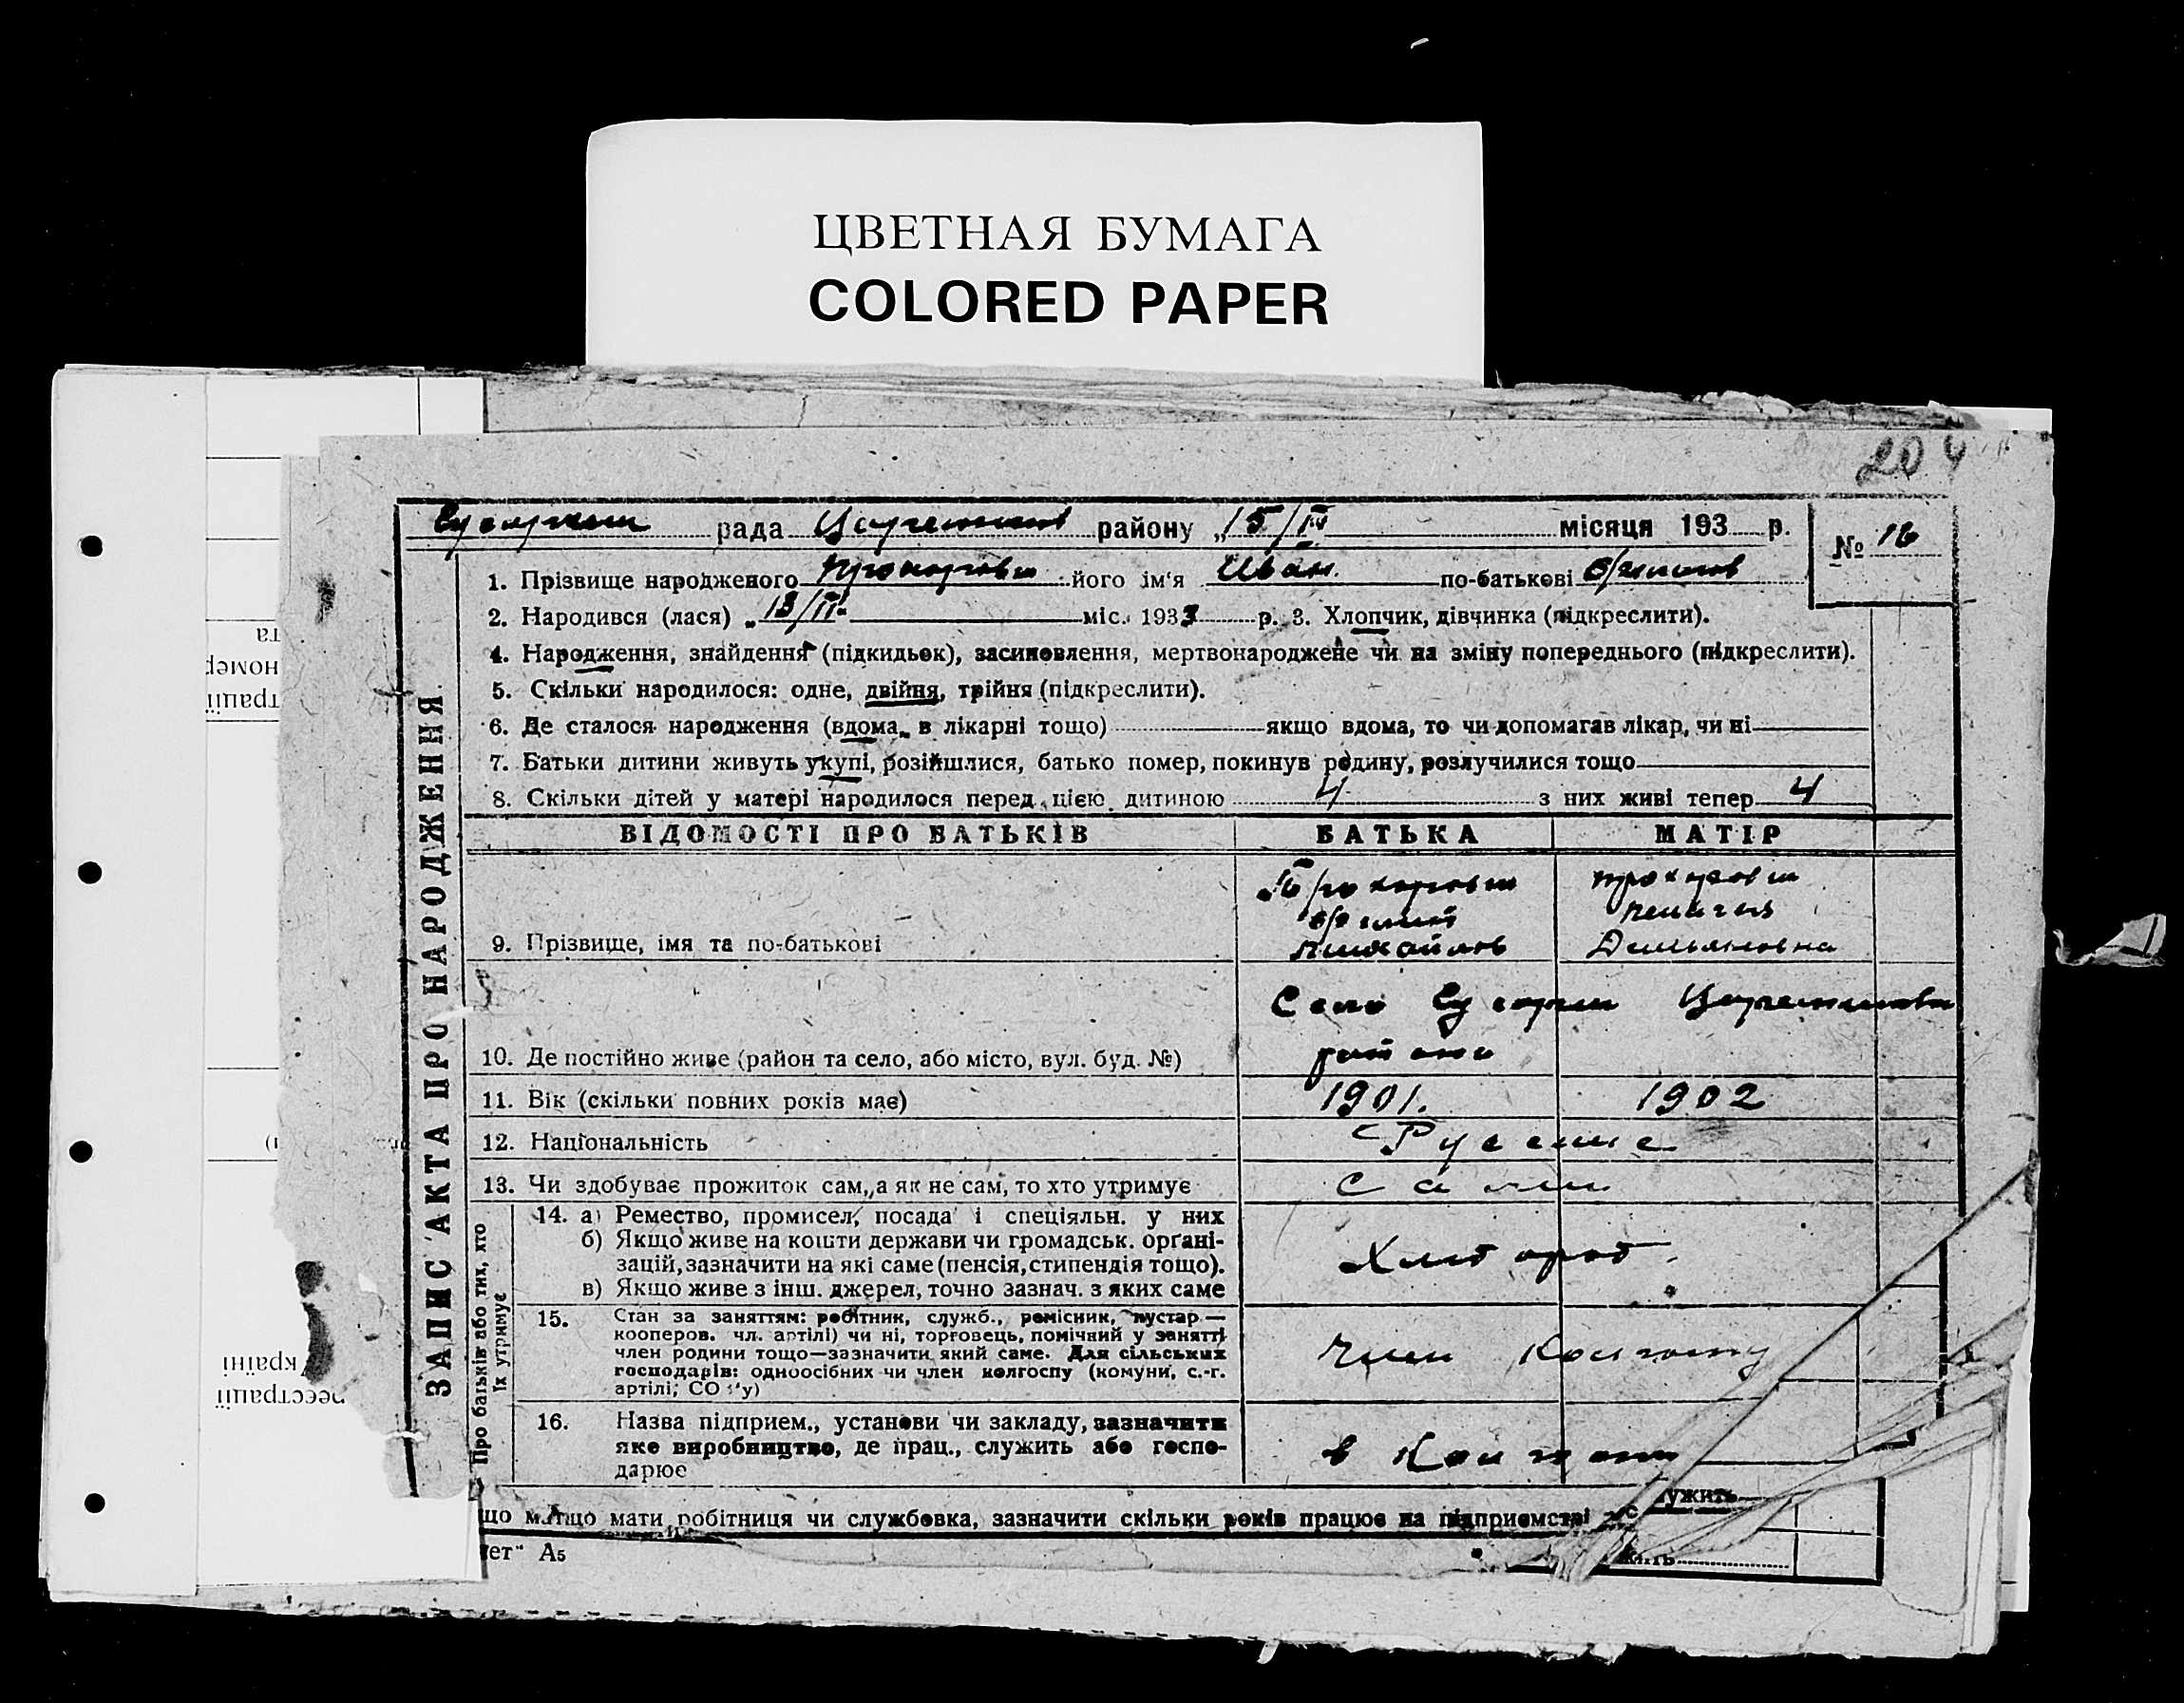 ЦВЕТНАЯ БУМАГА
COLORED PAPER
204
рада район у „15/IV місяця 193 р.
№ 16
1. Прізвище народженого його ім'я Иван. по-батькові
2. Народився (лася) „13/II. міс. 1933 р. 3. Хлопчик, дівчинка (підкреслити).
4. Народження, знайдення (підкидьок), засиновлення, мертвонароджене чи на зміну попереднього (підкреслити).
5. Скільки народилося: одне, двійня, трійня (підкреслити).
6. Де сталося народження (вдома, в лікарні тощо) якщо вдома, то чи допомагав лікар, чи ні
7. Батьки дитини живуть укупі, розійшлися, батько помер, покинув родину, розлучилися тощо
8. Скільки дітей у матері народилося перед цією дитиною 4 з них живі тепер 4
ЗАПИС АКТА ПРО НАРОДЖЕННЯ
ВІДОМОСТІ ПРО БАТЬКІВ БАТЬКА МАТІР
9. Прізвище, імя та по-батькові
Михайлов Демьяновна
Село
10. Де постійно живе (район та село, або місто, вул. буд. №)
11. Вік (скільки повних років має) 1901. 1902
12. Національність Русские
13. Чи здобуває прожиток сам, а як не сам, то хто утримує сами
Про батьків або тих, хто
їх утримує
14. а) Ремество, промисел, посада і спеціяльн. у них
б) Якщо живе на кошти держави чи громадськ. органі-
зацій, зазначити на які саме (пенсія, стипендія тощо).
в) Якщо живе з інш. джерел, точно зазнач. з яких саме
Хлебороб
15. Стан за заняттям: робітник, служб., ремісник, кустар—
кооперов. чл. артілі) чи ні, торговець, помічний у занятті
член родини тощо—зазначити який саме. Для сільських
господарів: одноосібних чи член колгоспу (комуни, с.-г.
артілі, СО у)
член
16. Назва підприєм., установи чи закладу, зазначити
яке виробництво, де прац., служить або госпо-
дарює
в
що мати робітниця чи службовка, зазначити скільки років працює на підприємстві
ужить
ет" А5
жить
та
номер
страції
реєстрації
країні